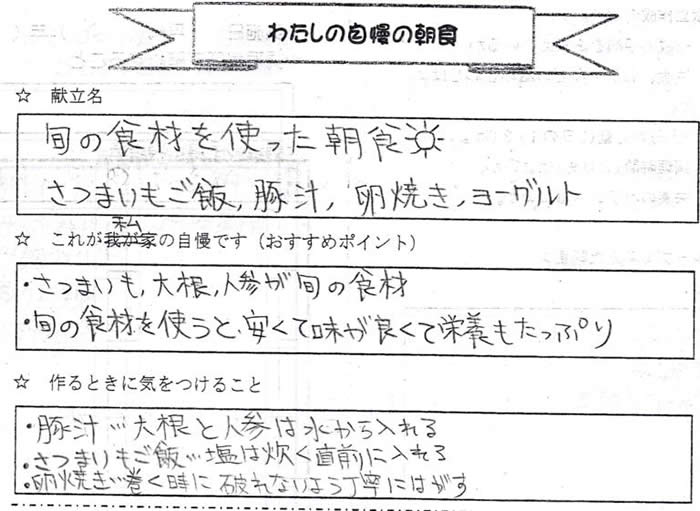 わたしの自慢の朝食
☆ 献立名
旬の食材を使った朝食
さつまいもご飯,豚汁,卵焼き,ヨーグルト
私
☆ これが我が家の自慢です（おすすめポイント）
・さつまいも,大根,人参が旬の食材
・旬の食材を使うと、安くて味が良くて栄養もたっぷり
☆ 作るときに気をつけること
・豚汁…大根と人参は水から入れる
・さつまいもご飯…塩は炊く直前に入れる
・卵焼き…巻く時に破れないよう丁寧にはがす